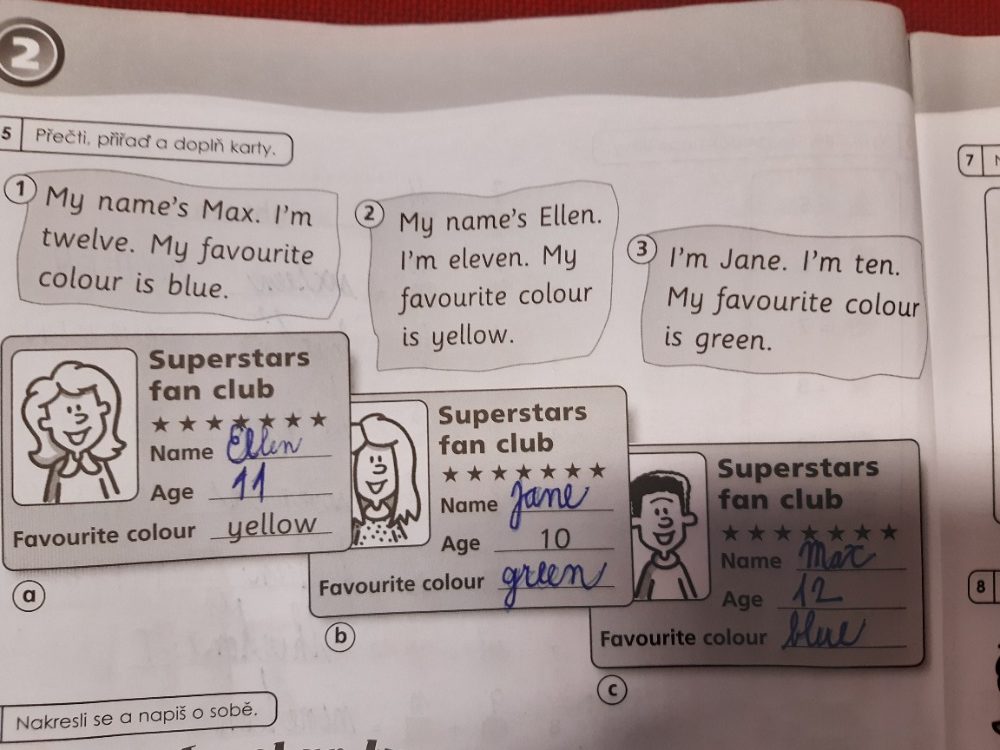 2
5 Přečti, přiřaď a doplň karty.
1 My name's Max. I'm
twelve. My favourite
colour is blue.
2 My name's Ellen.
I'm eleven. My
favourite colour
is yellow.
3 I'm Jane. I'm ten.
My favourite colour
is green.
Superstars
fan club
Name Ellen
Age 11
Favourite colour yellow
a
Superstars
fan club
Name Jane
Age 10
Favourite colour green
b
Superstars
fan club
Name Max
Age 12
Favourite colour blue
c
Nakresli se a napiš o sobě.
7
8